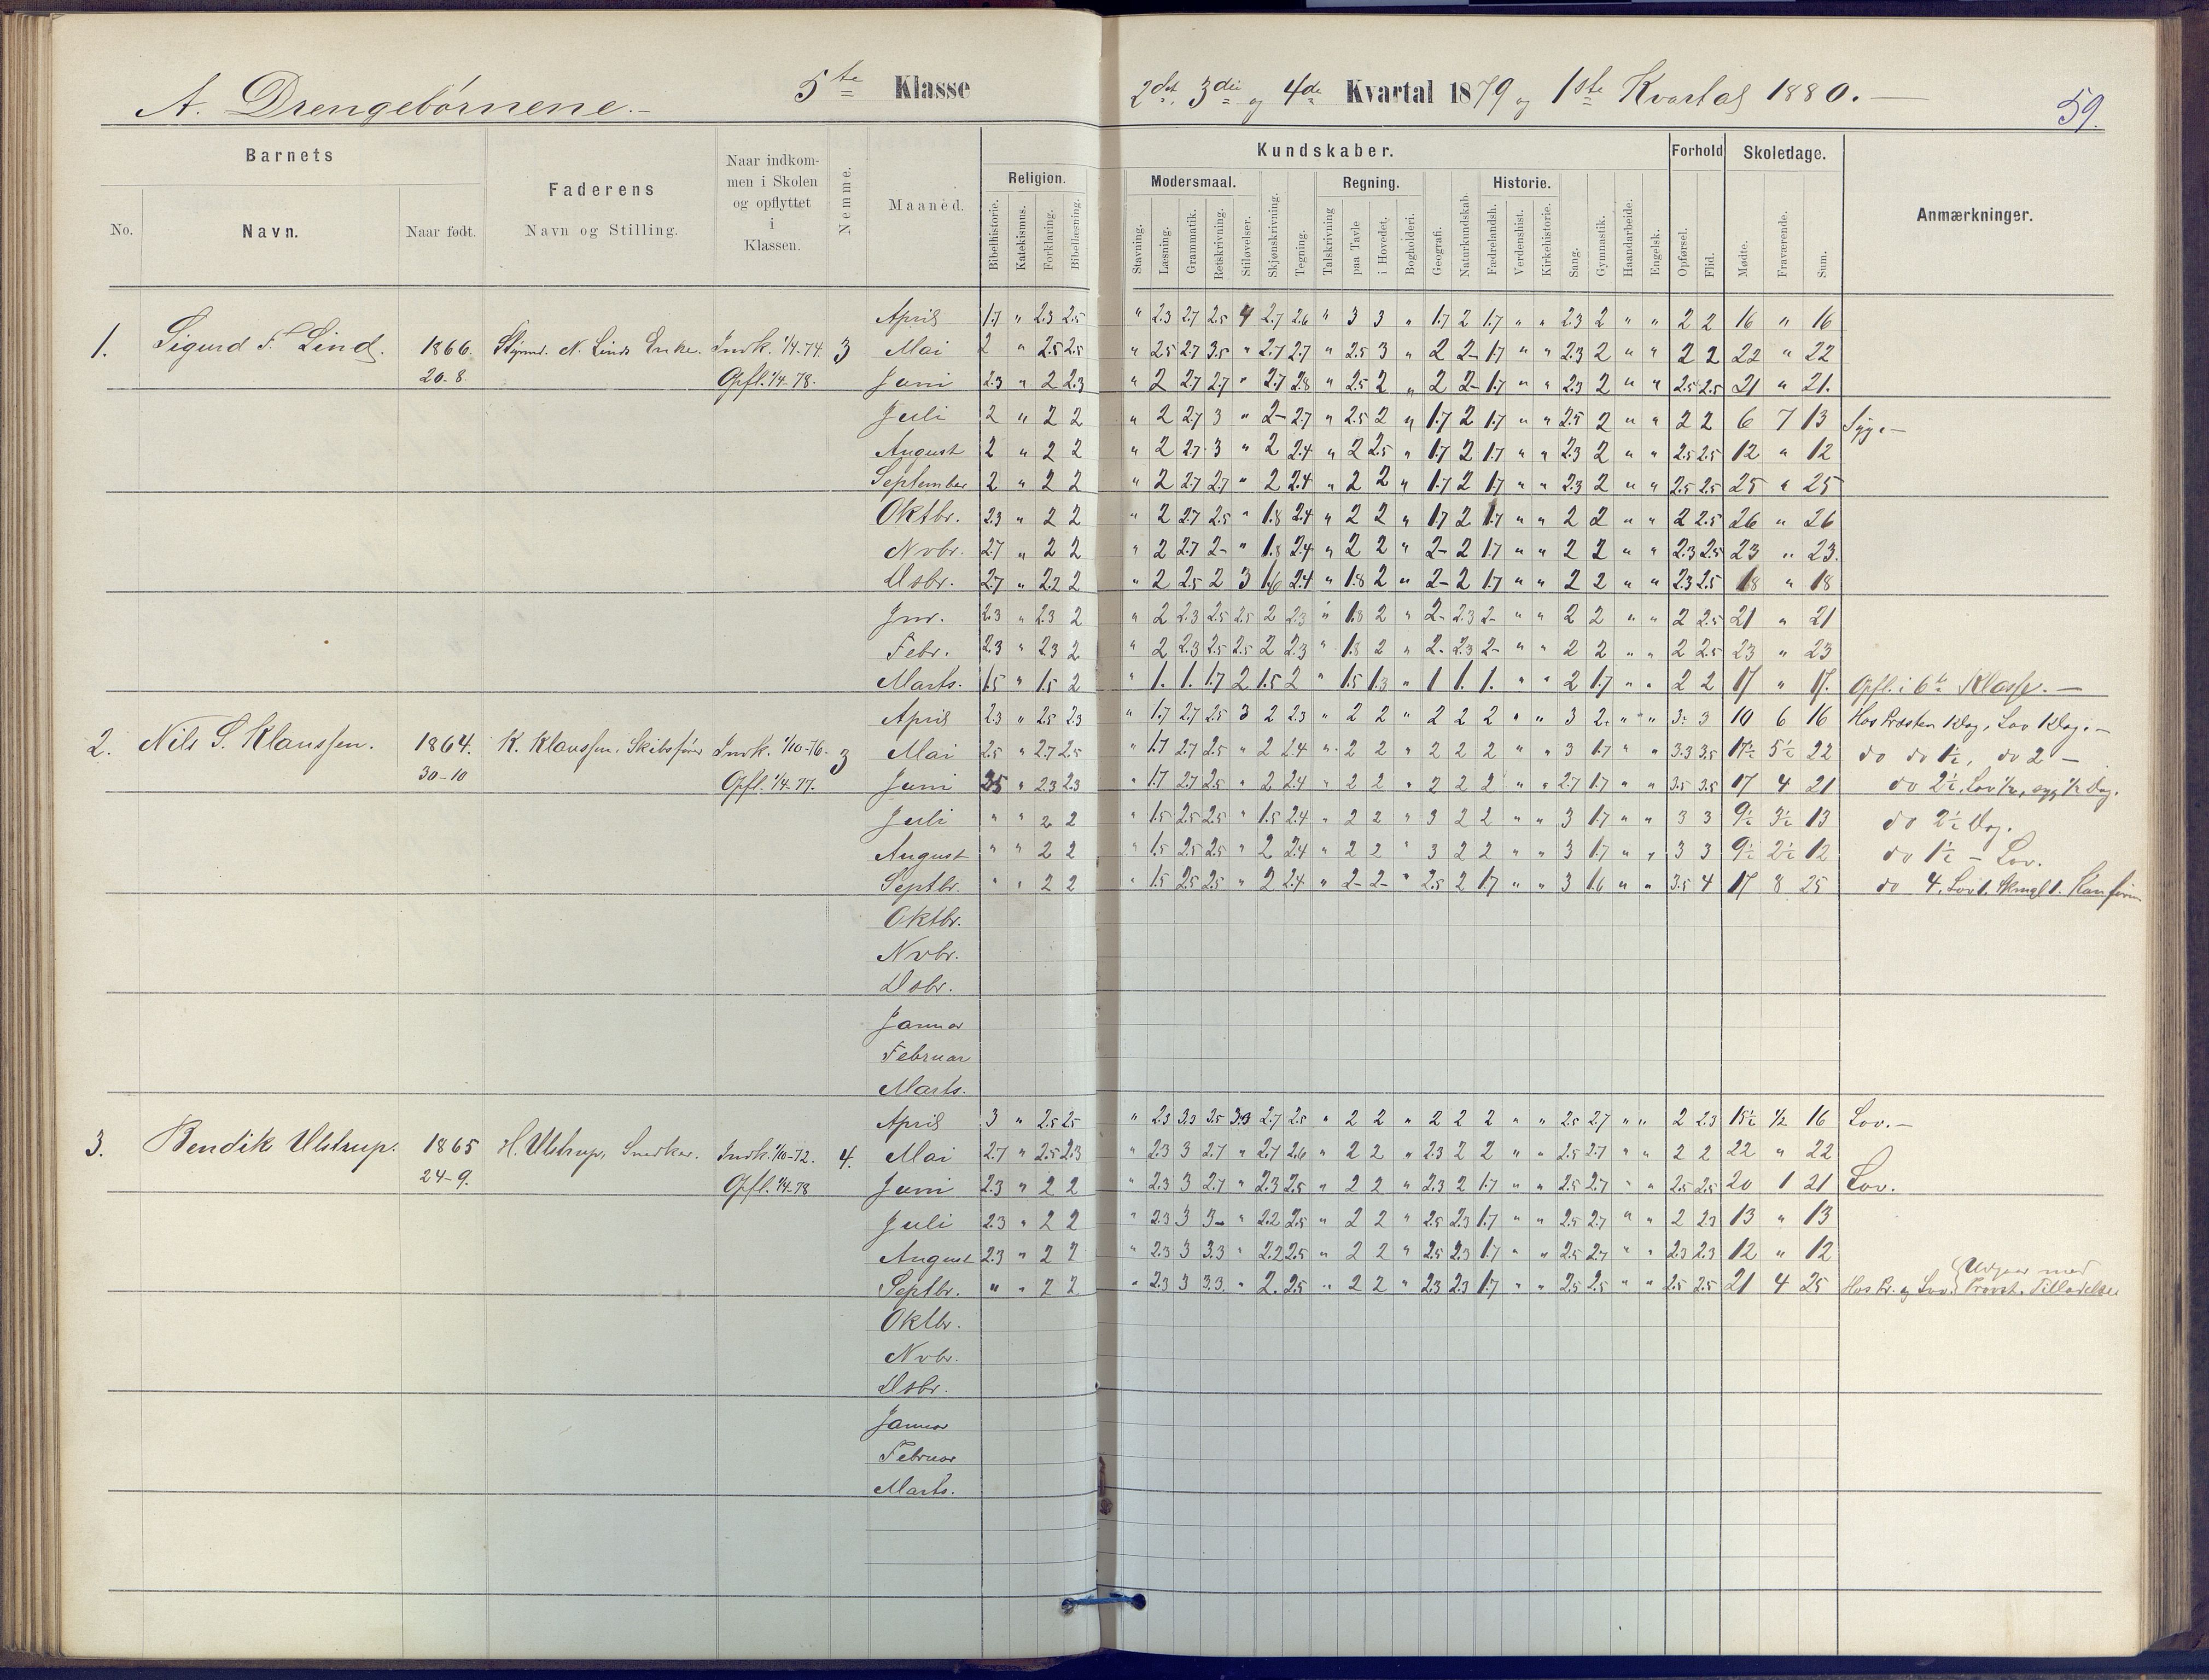 A. Drengebørnene.–
5te Klasse
2det, 3die og 4de Kvartal 1879 og 1ste Kvartal 1880.—
59.
Barnets
No. Navn. Naar født.
Faderens
Navn og Stilling.
Naar indkom-
men i Skolen
og opflyttet
i
Klassen.
Nemme.
Maaned.
Kundskaber.
Religion.
Bibelhistorie. Katekismus. Forklaring. Bibellæsning.
Modersmaal.
Stavning. Læsning. Grammatik. Retskrivning. Stiløvelser. Skjønskrivning. Tegning.
Regning.
Talskrivning paa Tavle i Hovedet. Bogholderi. Geografi. Naturkundskab.
Historie.
Fædrelandsh. Verdenshist. Kirkehistorie. Sang. Gymnastik. Haandarbeide. Engelsk.
Forhold
Opførsel. Flid.
Skoledage.
Mødte. Fraværende. Sum.
Anmærkninger.
1. Sigurd F. Lind. 1866. 20-8. N. Linds Enke. Indk. 1/4-74. Opfl. 1/4-78. 3
April 1.7 " 2.3 2.5 " 2.3 2.7 2.5 4 2.7 2.6 " 3 3 " 1.7 2 1.7 " " 2.3 2 " " 2 2 16 " 16
Mai 2 " 2.5 2.5 " 2.5 2.7 3.5 " 2.7 2.7 " 2.5 3 " 2 2- 1.7 " " 2.3 2 " " 2 2 22 " 22
Juni 2.3 " 2 2.3 " 2 2.7 2.7 " 2.7 2.8 " 2.5 2 " 2 2- 1.7 " " 2.3 2 " " 2.5 2.5 21 " 21.
Juli 2 " 2 2 " 2 2.7 3 " 2- 2.7 " 2.5 2 " 1.7 2 1.7 " " 2.5 2 " " 2 2 6 7 13 Syg.—
August 2 " 2 2 " 2 2.7 3 " 2 2.4 " 2 2.5 " 1.7 2 1.7 " " 2.3 2 " " 2.5 2.5 12 " 12
September 2 " 2 2 " 2 2.7 2.7 " 2 2.4 " 2 2 " 1.7 2 1.7 " " 2.3 2 " " 2.5 2.5 25 " 25
Oktbr. 2.3 " 2 2 " 2 2.7 2.5 " 1.8 2.4 " 2 2 " 1.7 2 1.7 " " 2 2 " " 2 2.5 26 " 26
Nvbr. 2.7 " 2 2 " 2 2.7 2- " 1.8 2.4 " 2 2 " 2- 2 1.7 " " 2 2 " " 2.3 2.5 23 " 23.
Dsbr. 2.7 " 2.2 2 " 2 2.5 2 3 1.6 2.4 " 1.8 2 " 2- 2 1.7 " " 2 2 " " 2.3 2.5 18 " 18
Jnr. 2.3 " 2.3 2 " 2 2.3 2.5 2.5 2 2.3 " 1.8 2 " 2- 2.3 2- " " 2 2 " " 2 2.5 21 " 21
Febr. 2.3 " 2.3 2 " 2 2.3 2.5 2.5 2 2.3 " 1.8 2 " 2- 2.3 2- " " 2 2 " " 2 2.5 23 " 23
Marts. 1.5 " 1.5 2 " 1. 1. 1.7 2 1.5 2 " 1.5 1.3 " 1 1. 1. " " 2 1.7 " " 2 2 17 " 17. Opfl. i 6te Klasse.—
2. Nils S. Klaussen. 1864. 30-10 K. Klaussen, Skibsfører Indk. 1/10-76. Opfl. 1/4-77. 3
April 2.3 " 2.5 2.3 " 1.7 2.7 2.5 3 2 2.3 " 2 2 " 2 2 2 " " 3 2. " " 3. 3 10 6 16 Hos Præsten 1 Dag, Lov 1 Dag.—
Mai 2.5 " 2.7 2.5 " 1.7 2.7 2.5 " 2 2.4 " 2 2 " 2 2 2 " " 3 1.7 " " 3.3 3.5 17½ 5½ 22 do do 1½, do 2 —
Juni 2.5 " 2.3 2.3 " 1.7 2.7 2.5 " 2 2.4 " 2 2 " 2 2 2 " " 2.7 1.7 " " 3.5 3.5 17 4 21 do 2½, Lov ½, syg ½ Dag.
Juli " " 2 2 " 1.5 2.5 2.5 " 1.5 2.4 " 2 2 " 3 2 2 " " 3 1.7 " " 3 3 9½ 3½ 13 do 2½ Dag.
August " " 2 2 " 1.5 2.5 2.5 " 2 2.4 " 2 2 " 3 2 2 " " 3 1.7 " " 3 3 9½ 2½ 12 do 1½ – Lov.
Septbr. " " 2 2 " 1.5 2.5 2.5 " 2 2.4 " 2- 2- " 2.5 2 1.7 " " 3 1.6 " " 3.5 4 17 8 25 do 4, Lov 1.
Oktbr.
Nvbr.
Dsbr.
Januar
Februar
Marts.
3. Bendik Ulstrup. 1865 24-9. H. Ulstrup, Snedker. Indk. 1/10-72. Opfl. 1/4-78 4.
April 3 " 2.5 2.5 " 2.3 3.3 3.5 3.3 2.7 2.5 " 2 2 " 2 2 2 " " 2.5 2.7 " " 2 2.3 15½ ½ 16 Lov.—
Mai 2.7 " 2.5 2.3 " 2.3 3 2.7 " 2.7 2.6 " 2 2 " 2.3 2 2 " " 2.5 2.7 " " 2 2 22 " 22
Juni 2.3 " 2 2 " 2.3 3 2.7 " 2.3 2.5 " 2 2 " 2.3 2 1.7 " " 2.5 2.7 " " 2.5 2.5 20 1 21 Lov.
Juli 2.3 " 2 2 " 2.3 3 3- " 2.2 2.5 " 2 2 " 2.5 2.3 1.7 " " 2.5 2.7 " " 2 2.3 13 " 13
August 2.3 " 2 2 " 2.3 3 3.3 " 2.2 2.5 " 2 2 " 2.5 2.3 1.7 " " 2.5 2.7 " " 2.3 2.3 12 " 12
Septbr. " " 2 2 " 2.3 3 3.3. " 2. 2.5 " 2 2 " 2.3 2.3 1.7 " " 2.5 2.5 " " 2.5 2.5 21 4 25 Hos Pr. og Lov. Udgaar med Provst. Tilladelse
Oktbr.
Nvbr.
Dsbr.
Januar
Februar
Marts.